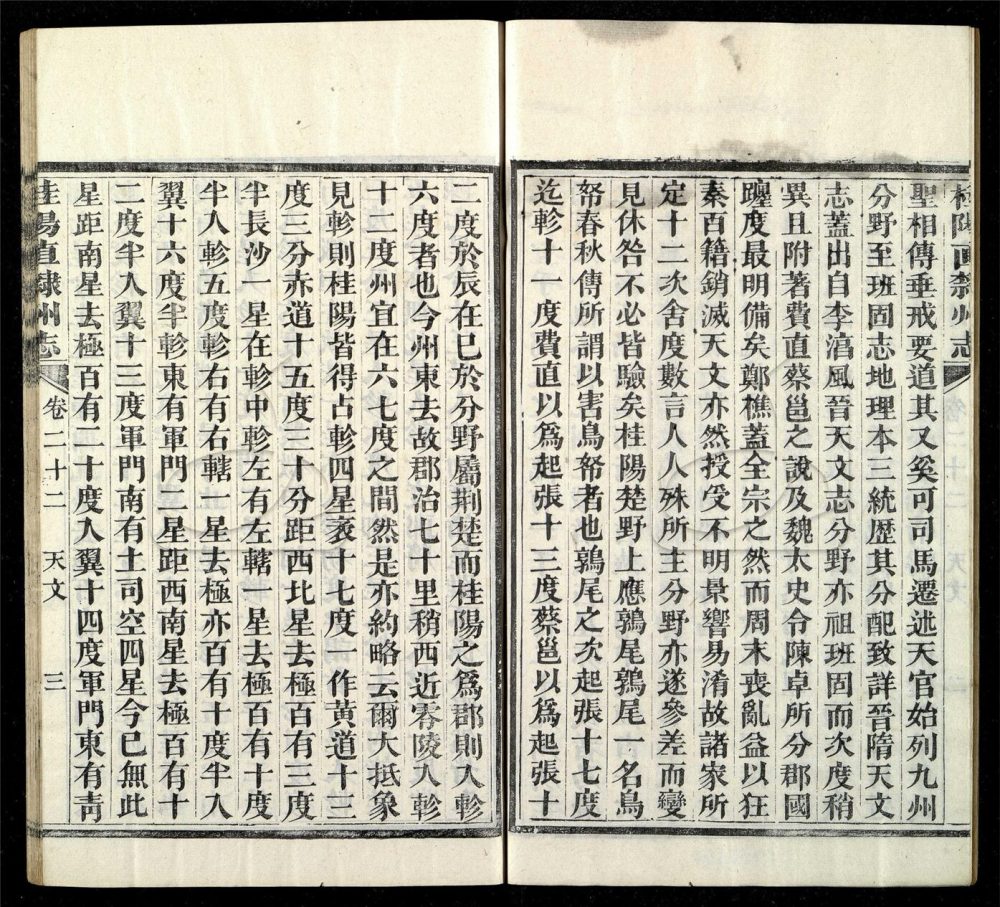 桂陽直隸州志
聖相傳垂戒要道其又奚可司馬遷述天官始列九州
分野至班固志地理本三統歷其分配致詳晉隋天文
志蓋出自李淳風晉天文志分野亦祖班固而次度稍
異且附著費直蔡邕之說及魏太史令陳卓所分郡國
躔度最明備矣鄭樵蓋全宗之然而周末喪亂益以狂
秦百籍銷滅天文亦然授受不明景響易淆故諸家所
定十二次舍度數言人人殊所主分野亦遂參差而變
見休咎不必皆驗矣桂陽楚野上應鶉尾鶉尾一名鳥
帑春秋傳所謂以害鳥帑者也鶉尾之次起張十七度
迄軫十一度費直以爲起張十三度蔡邕以爲起張十
二度於辰在巳於分野屬荆楚而桂陽之爲郡則入軫
六度者也今州東去故郡治七十里稍西近零陵入軫
十二度州宜在六七度之間然是亦約略云爾大抵象
見軫則桂陽皆得占軫四星袤十七度一作黄道十三
度三分赤道十五度三十分距西北星去極百有三度
半長沙一星在軫中軫左有左轄一星去極百有十度
半入軫五度軫右有右轄一星去極亦百有十度半入
翼十六度半軫東有軍門二星距西南星去極百有十
二度半入翼十三度軍門南有土司空四星今已無此
星距南星去極百有二十度入翼十四度軍門東有青
桂陽直隸州志 卷二十二 天文 三